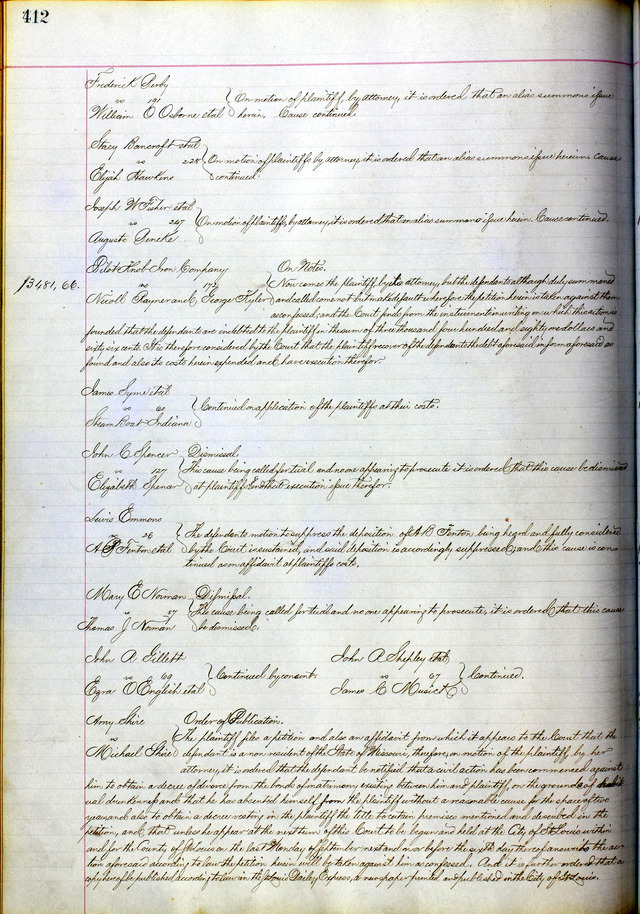 412
Frederick Derby
vs 191
William O Osborne etal
On motion of plaintiff, by attorney, it is ordered that an alias summons issue
herein. Cause continued.
Stacy Bancroft etal
vs 228
Elijah Hawkins
On motion of plaintiffs by attorney it is ordered that an alias summons issue herein & cause
continued.
Joseph W Fisher etal
vs 247
Auguste
On motion of plaintiffs, by attorney, it is ordered that an alias summons issue herein. Cause continued.
Pilot Knob Iron Company On Notes.
$3481,66.
vs 172
Nicoll Rayner and George Kyler
Now comes the plaintiff, by its attorney, but the defendants although duly summoned
and called come not but make default wherefore the petition herein is taken against them
as confessed; and the Court finds from the instruments in writing on which this action is
founded that the defendants are indebted to the plaintiff in the sum of three thousand four hundred and eighty one dollars and
sixty six cents. It is therefore considered by the Court that the plaintiff recover of the defendants the debt aforesaid, in form aforesaid so
found and also its costs herein expended and have execution therefor.
James Syme etal
vs 60
Steam Boat Indiana
Continued on application of the plaintiffs at their costs.
John C Spencer Dismissal
vs 127
Elizabeth Spencer
This cause being called for trial and no one appearing to prosecute it is ordered that this cause be dismissed
at plaintiffs and that execution issue therefor.
Lewis Emmons
vs 26
A B Fenton etal
The defendants motion to suppress the deposition of A B Fenton being heard and fully considered
by the Court is sustained, and said deposition is accordingly suppressed; and this cause is con=
tinued on affidavit at plaintiffs costs.
Mary E Norman Dismissal.
vs 87
Thomas J Norman
This cause being called for trial and no one appearing to prosecute, it is ordered that this cause
be dismissed.
John A Gillett
vs 69
Ezra O English etal
Continued by consent.
John A Shepley etal
vs 67
James C Musick
Continued.
Amy Shire Order of Publication.
vs
Michael Shire
The plaintiff files a petition and also an affidavit from which it appears to the Court that the
defendant is a non resident of the State of Missouri, therefore, on motion of the plaintiff, by her
attorney, it is ordered that the defendant be notified that a civil action has been commenced against
him to obtain a decree of divorce from the bonds of matrimony existing between him and plaintiff, on the grounds of habit
ual drunkenness and that he has absented himself from the plaintiff without a reasonable cause for the space of two
years and also to obtain a decree vesting in the plaintiff the title to certain premises mentioned and described in the
petition, and that unless he appear at the next term of this Court to be begun and held at the City of St Louis within
and for the County of St Louis on the last Monday of September next and on or before the sixth day thereof answer to the ac=
tion aforesaid according to law the petition herein will be taken against him as confessed. And it is further ordered that a
copy hereof be published according to law in the St Louis Dailey Express, a newspaper printed and published in the City of St Louis.